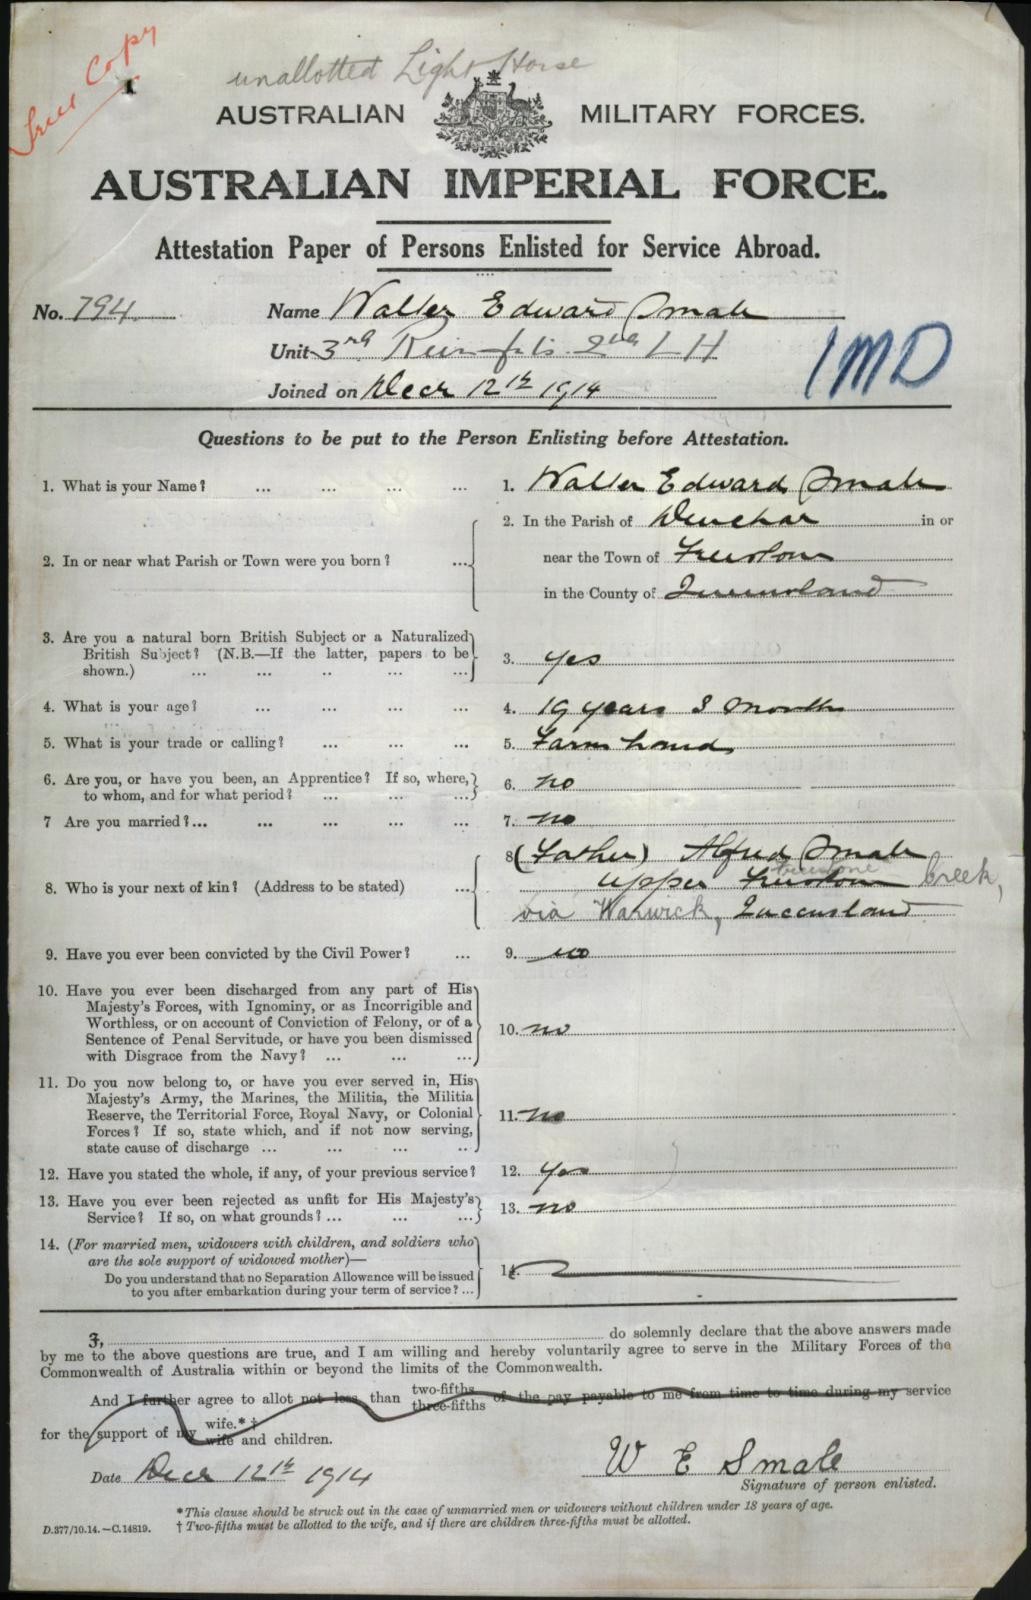 True Copy
unallotted Light Horse
AUSTRALIAN MILITARY FORCES.
AUSTRALIAN IMPERIAL FORCE.
Attestation Paper of Persons Enlisted for Service Abroad.
No. 794 Name Walter Edward Smale
Unit 3rd Reinfts 2nd LH
1MD
Joined on Decr 12th 1914
Questions to be put to the Person Enlisting before Attestation.
1. What is your Name? ... ... ... ... 1. Walter Edward Smale
2. In or near what Parish or Town were you born? ... 2. In the Parish of in or
near the Town of Freestone
in the County of Queensland
3. Are you a natural born British Subject or a Naturalized
British Subject? (N.B.—If the latter, papers to be
shown.) ... ... ... ... ... 3. yes
4. What is your age? ... ... ... ... 4. 19 years 3 month
5. What is your trade or calling? ... ... ... 5. Farm hand
6. Are you, or have you been, an Apprentice? If so, where,
to whom, and for what period? ... ... ... 6. no
7 Are you married?... ... ... ... ... 7. no
8. Who is your next of kin? (Address to be stated) ... 8 (Father) Alfred Smale
Upper Freestone Freestone Creek,
via Warwick, Queensland
9. Have you ever been convicted by the Civil Power? ... 9. no
10. Have you ever been discharged from any part of His
Majesty's Forces, with Ignominy, or as Incorrigible and
Worthless, or on account of Conviction of Felony, or of a
Sentence of Penal Servitude, or have you been dismissed
with Disgrace from the Navy? ... ... ... 10. no
11. Do you now belong to, or have you ever served in, His
Majesty's Army, the Marines, the Militia, the Militia
Reserve, the Territorial Force, Royal Navy, or Colonial
Forces? If so, state which, and if not now serving,
state cause of discharge ... ... ... .. 11. no
12. Have you stated the whole, if any, of your previous service? 12. yes
13. Have you ever been rejected as unfit for His Majesty's
Service? If so, on what grounds? ... ... ... 13. no
14. (For married men, widowers with children, and soldiers who
are the sole support of widowed mother)—
Do you understand that no Separation Allowance will be issued
to you after embarkation during your term of service? ... 14.
I, do solemnly declare that the above answers made
by me to the above questions are true, and I am willing and hereby voluntarily agree to serve in the Military Forces of the
Commonwealth of Australia within or beyond the limits of the Commonwealth.
And I further agree to allot not less than two-fifths three-fifths of the pay payable to me from time to time during my service
for the support of my wife.*† wife and children.
Date Decr 12th 1914 W E Smale
Signature of person enlisted.
* This clause should be struck out in the case of unmarried men or widowers without children under 18 years of age.
D.377/10.14.—C.14819. † Two-fifths must be allotted to the wife, and if there are children three-fifths must be allotted.